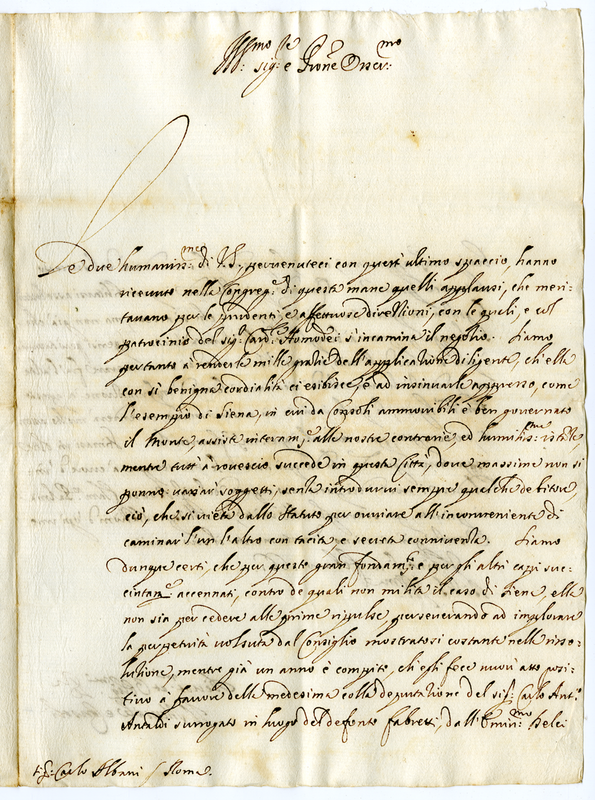 Ill.mo Sig.r e Pron̄e Osser.mo
Le due humaniss.me di V.S. pervenuteci con quest'ultimo spaccio, hanno
ricevuto nella Congreg.e di questa mane quelli applausi, che meri-
tavano per le prudenti, e affettuose direttioni, con le quali, e col
patrocinio del sig.r Card. Homodei s'incamina il negotio. Siamo
pertanto à renderle mille gratie dell'applicatione diligente, ch'ella
con sì benigna cordialità ci esibisce, e ad insinuarle appresso, come
l'esempio di Siena, in cui da Consoli ammovibili è ben governato
il Monte, assiste interam.e alle nostre contrarie, ed humiliss.me
mentre tutt'à rovescio succede in questa Città, dove massime non si
ponno variar soggetti, senza introdurvi sempre qualche debitore
ciò, che si vieta dallo Statuto per ovviare all'inconveniente di
caminar l'un l'altro con tacita, e secreta connivenza. Siamo
dunque certi, che per queste gran fondam.ti e per gli altri capi suc-
cintam.e accennati, contro de quali non milita il caso di Siena, ella
non sia per cedere alle prime ripulse, perseverando ad implorare
la perpetuità voluta dal Consiglio mostratosi costante nella riso-
lutione, mentre già un anno è compito, ch'egli fece nuovo atto posi-
tivo à favore della medesima colla deputatione del sig.r Carlo Ant.o
Antaldi surrogato in luogo del defonto Fabreti, dall'Emin.mo Delci
S.r Carlo Albani / Roma.